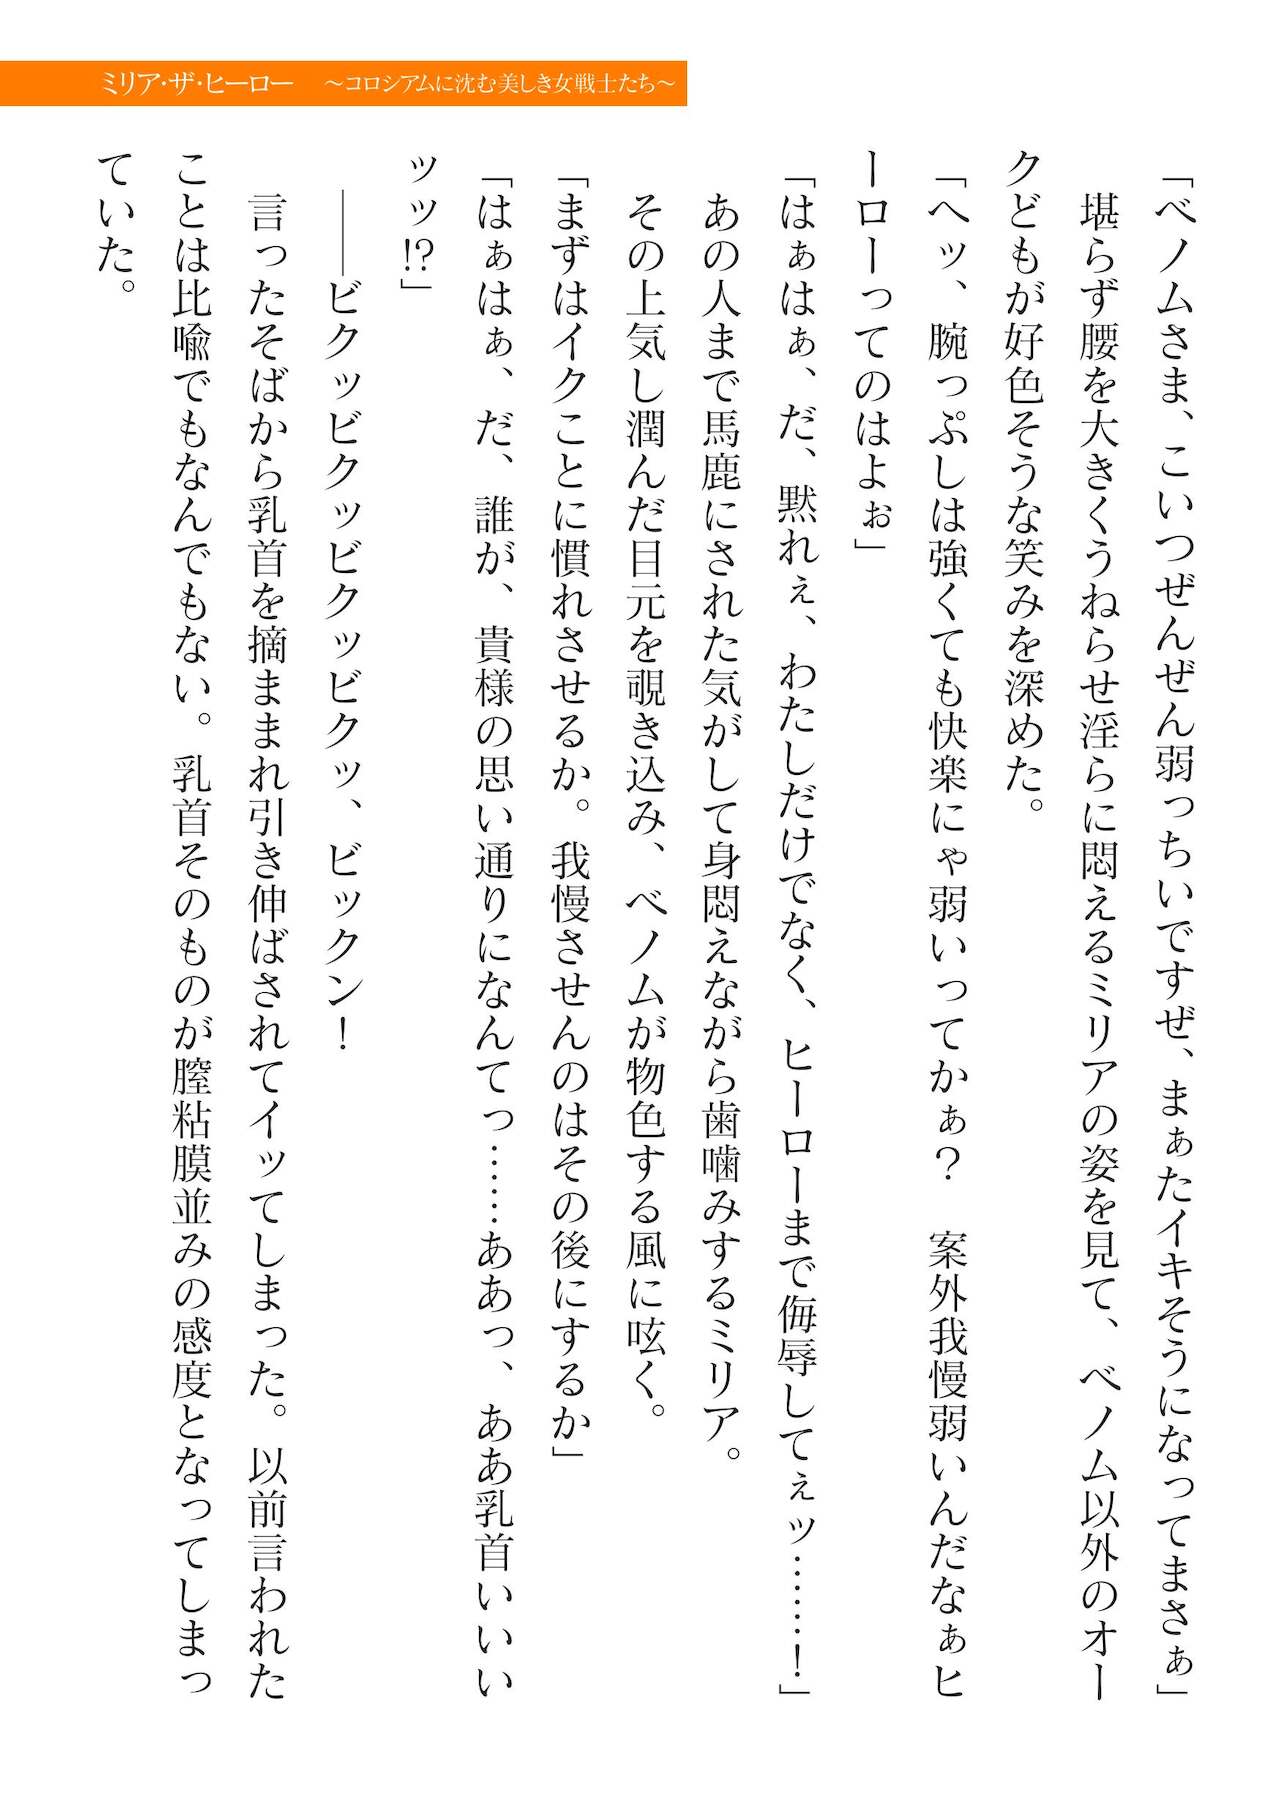 ミリア・ザ・ヒーロー　～コロシアムに沈む美しき女戦士たち～
「ベノムさま、こいつぜんぜん弱っちいですぜ、まぁたイキそうになってまさぁ」
　堪らず腰を大きくうねらせ淫らに悶えるミリアの姿を見て、ベノム以外のオー
クどもが好色そうな笑みを深めた。
「ヘッ、腕っぷしは強くても快楽にゃ弱いってかぁ？　案外我慢弱いんだなぁヒ
ーローってのはよぉ」
「はぁはぁ、だ、黙れぇ、わたしだけでなく、ヒーローまで侮辱してぇッ……！」
　あの人まで馬鹿にされた気がして身悶えながら歯噛みするミリア。
　その上気し潤んだ目元を覗き込み、ベノムが物色する風に呟く。
「まずはイクことに慣れさせるか。我慢させんのはその後にするか」
「はぁはぁ、だ、誰が、貴様の思い通りになんてっ……ああっ、ああ乳首いいい
ッッ!?」
　――ビクッビクッビクッビクッ、ビックン！
　言ったそばから乳首を摘ままれ引き伸ばされてイッてしまった。以前言われた
ことは比喩でもなんでもない。乳首そのものが膣粘膜並みの感度となってしまっ
ていた。